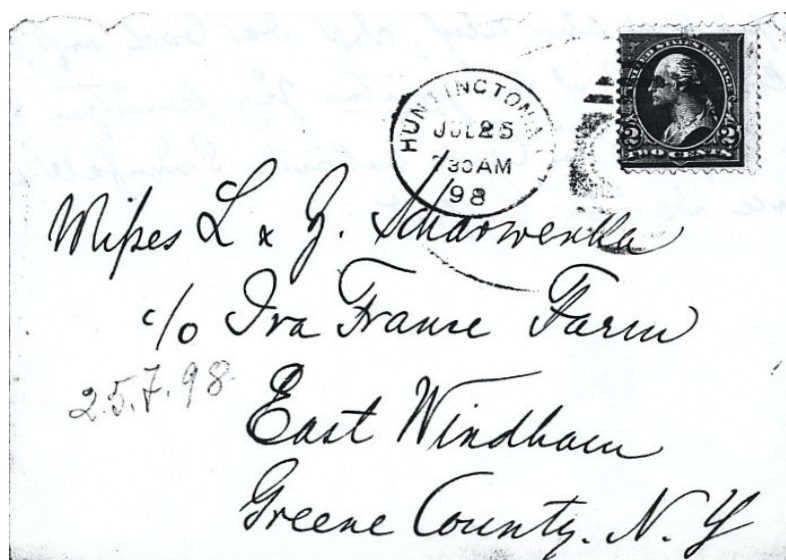 UNITED STATES POSTAGE
2 2
TWO CENTS
HUNTINGTON
JUL 25
730AM
98
Misses L & Z. Scharwenka
c/o Ira France Farm
East Windham
25.7.98
Greene County. N. Y